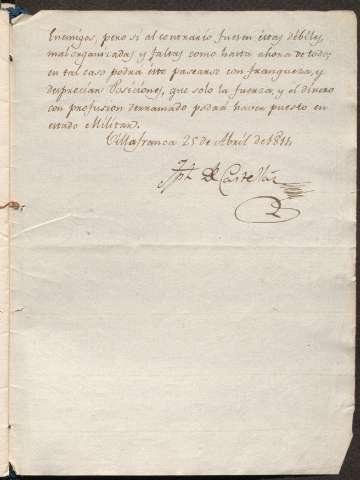 Enemigos, pero si al contrario fuesen estas débiles,
mal organizadas y faltas como hasta ahora de todo;
en tal caso podrá este pasearse con franqueza, y
despreciar Posiciones, que solo la fuerza, y el dinero
con profusion derramado podrá haver puesto en
estado Militar.
Villafranca 25 de Abril de 1811
Jph de Castellar